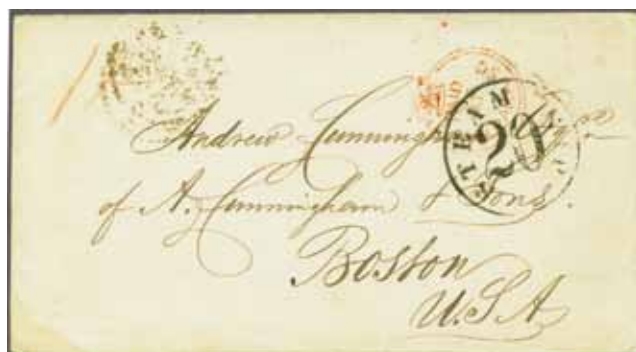 STEAM
20
Andrew Cunningham Esqre
of A. Cunningham & Sons.
Boston
U.S.A